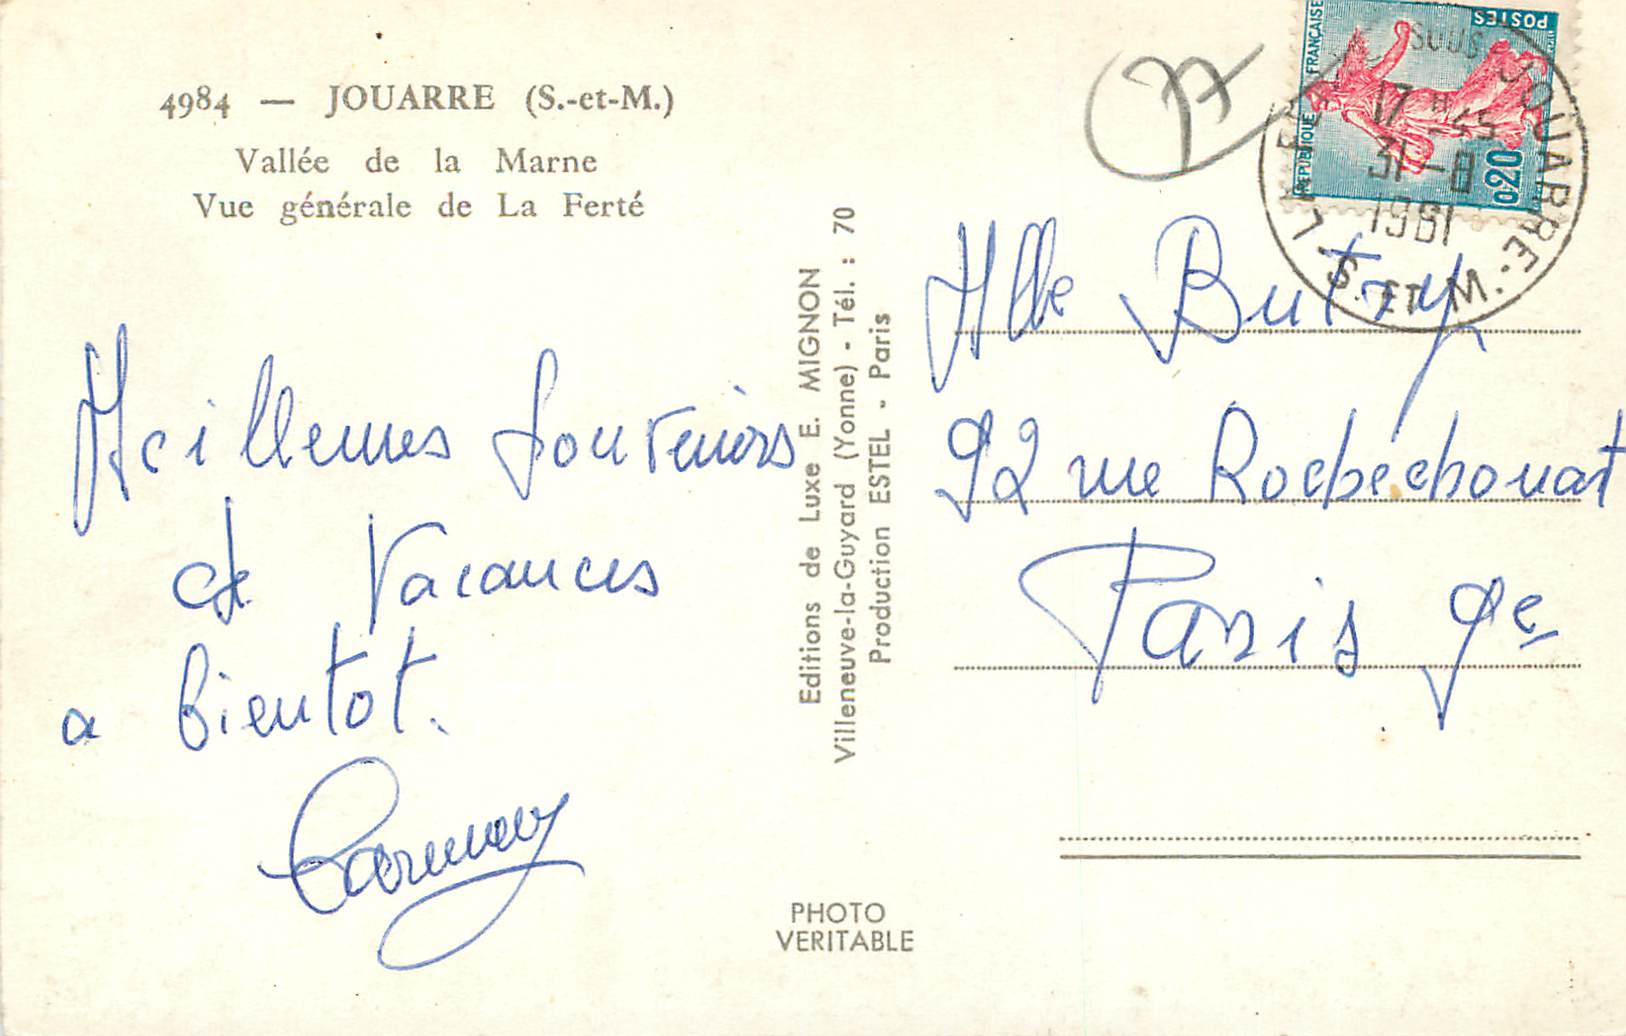 4984 — JOUARRE (S.-et-M.)
Vallée de la Marne
Vue générale de La Ferté
Meilleures Souvenirs
de Vacances
a bientot.
Editions de Luxe E. MIGNON
Villeneuve-la-Guyard (Yonne) - Tél. : 70
Production ESTEL - Paris
PHOTO
VERITABLE
77
REPUBLIQUE FRANÇAISE
POSTES
0,20
LA FERTE SOUS JOUARRE
17 H 45
31-8
1961
S. ET M.
Mlle Butry
92 rue Rochechouart
Paris 9e